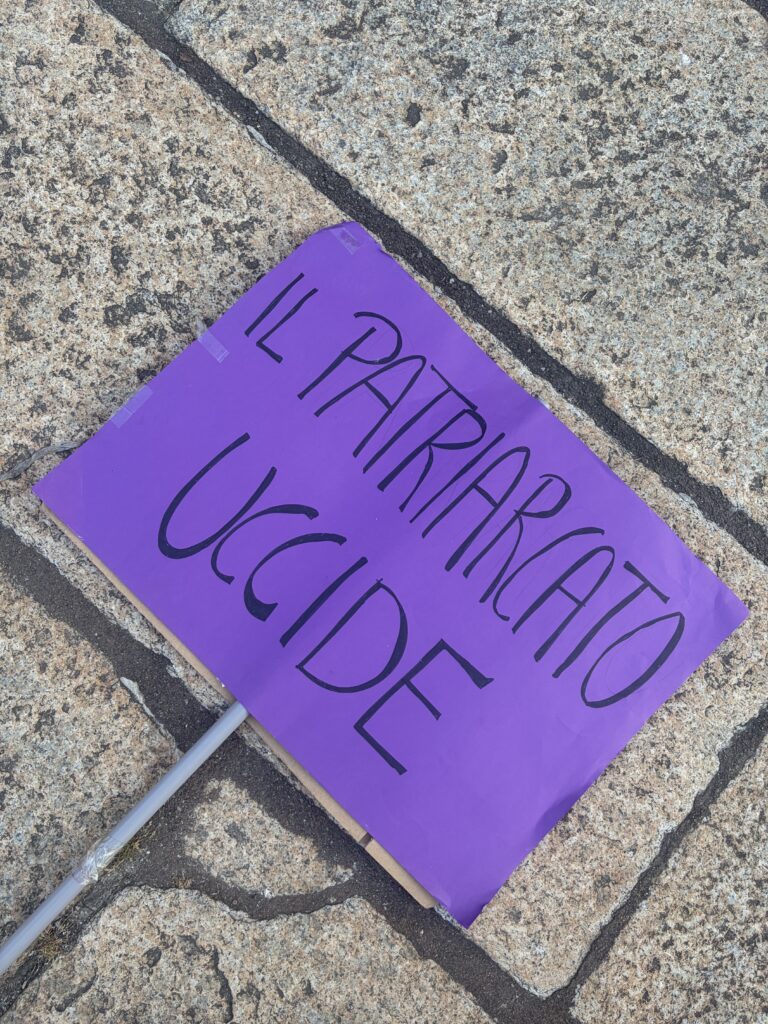 IL PATRIARCATO
UCCIDE